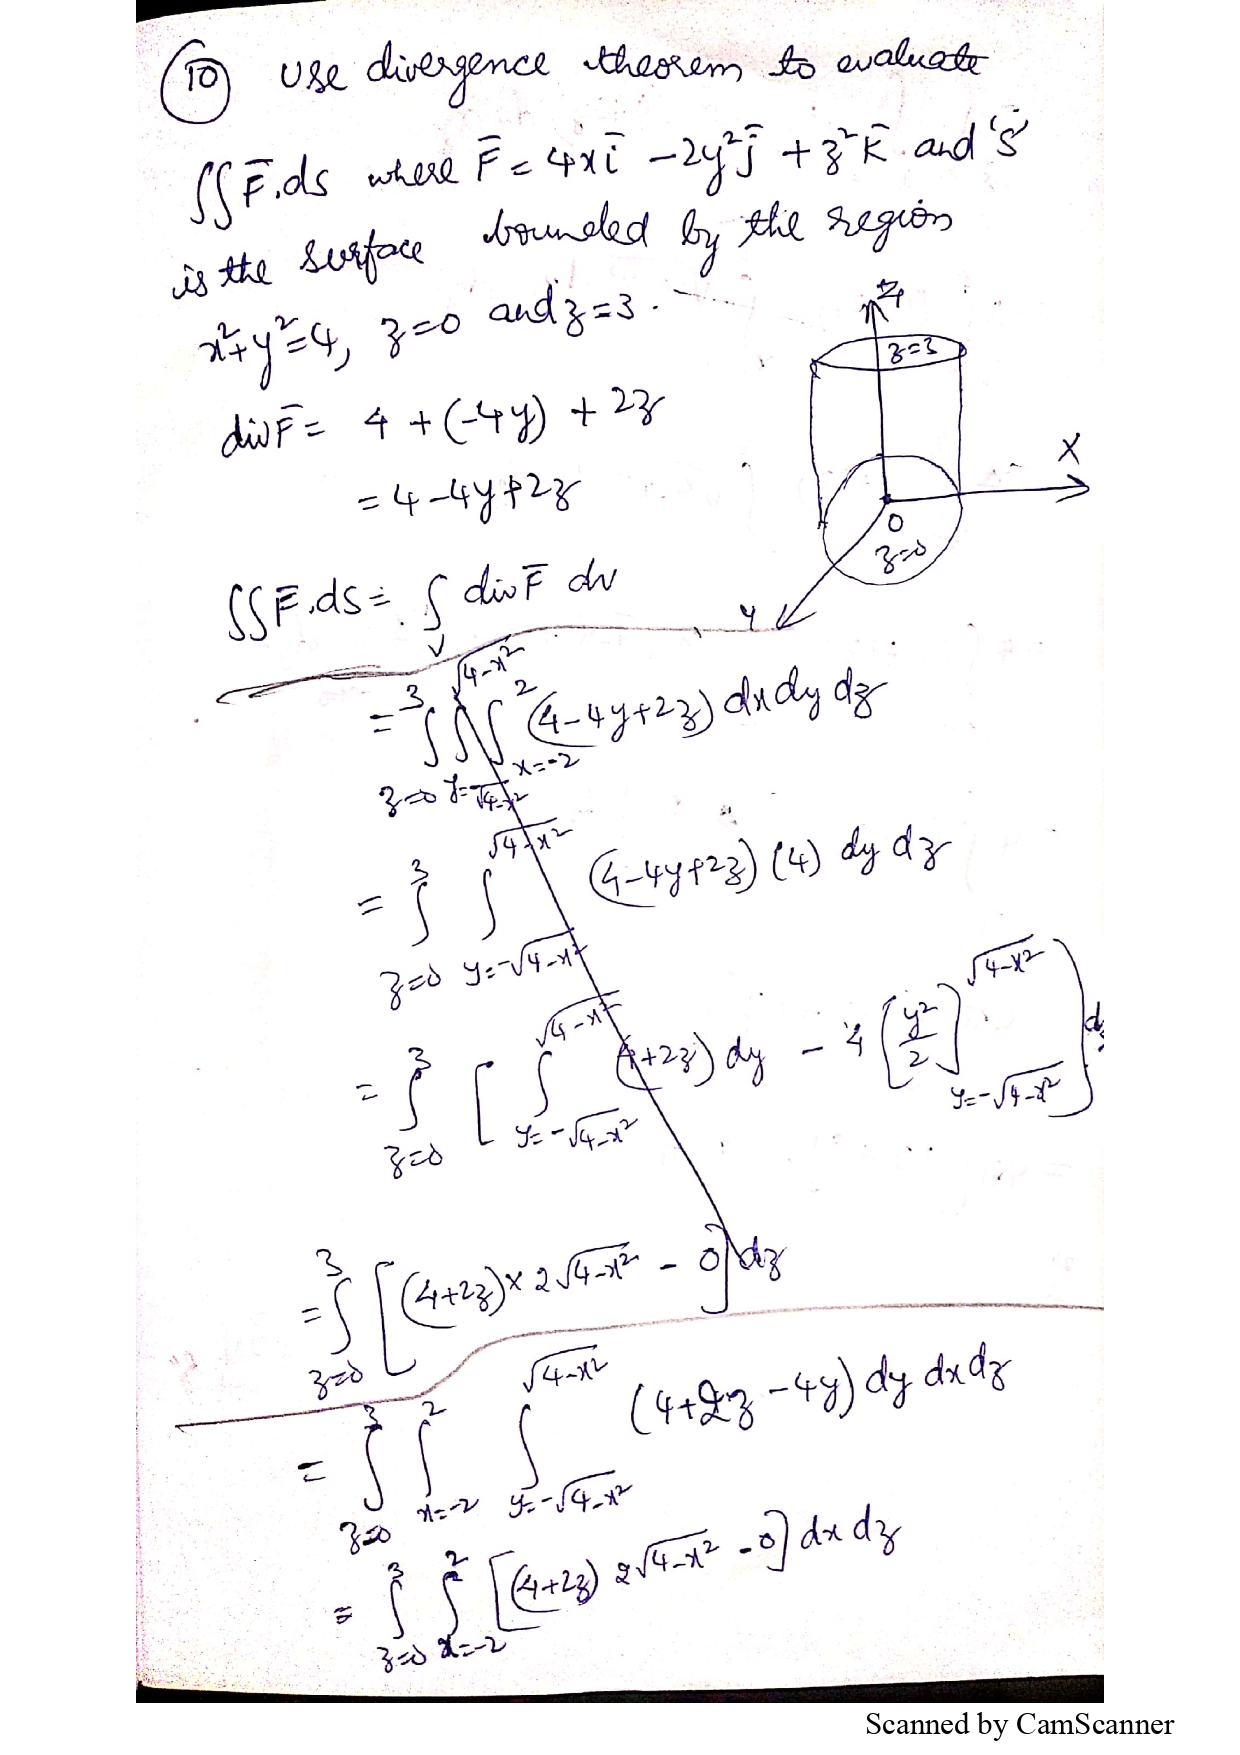 10 Use divergence theorem to evaluate
∬ F̄.ds where F̄ = 4xī - 2y²j̄ + z²k̄ and 'S'
is the surface bounded by the region
x²+y²=4, z=0 and z=3.
Z
z=3
X
O
z=0
Y
div F̄ = 4 + (-4y) + 2z
= 4-4y+2z
∬ F̄.ds = ∫_V div F̄ dv
= ∫_{z=0}^{3} ∫_{y=-√(4-x²)}^{√(4-x²)} ∫_{x=-2}^{2} (4-4y+2z) dx dy dz
= ∫_{z=0}^{3} ∫_{y=-√(4-x²)}^{√(4-x²)} (4-4y+2z) (4) dy dz
= ∫_{z=0}^{3} [ ∫_{y=-√(4-x²)}^{√(4-x²)} (4+2z) dy - 4 [y²/2]_{y=-√(4-x²)}^{√(4-x²)} ] dz
= ∫_{z=0}^{3} [(4+2z) × 2√(4-x²) - 0] dz
= ∫_{z=0}^{3} ∫_{x=-2}^{2} ∫_{y=-√(4-x²)}^{√(4-x²)} (4+2z-4y) dy dx dz
= ∫_{z=0}^{3} ∫_{x=-2}^{2} [(4+2z) 2√(4-x²) - 0] dx dz
Scanned by CamScanner